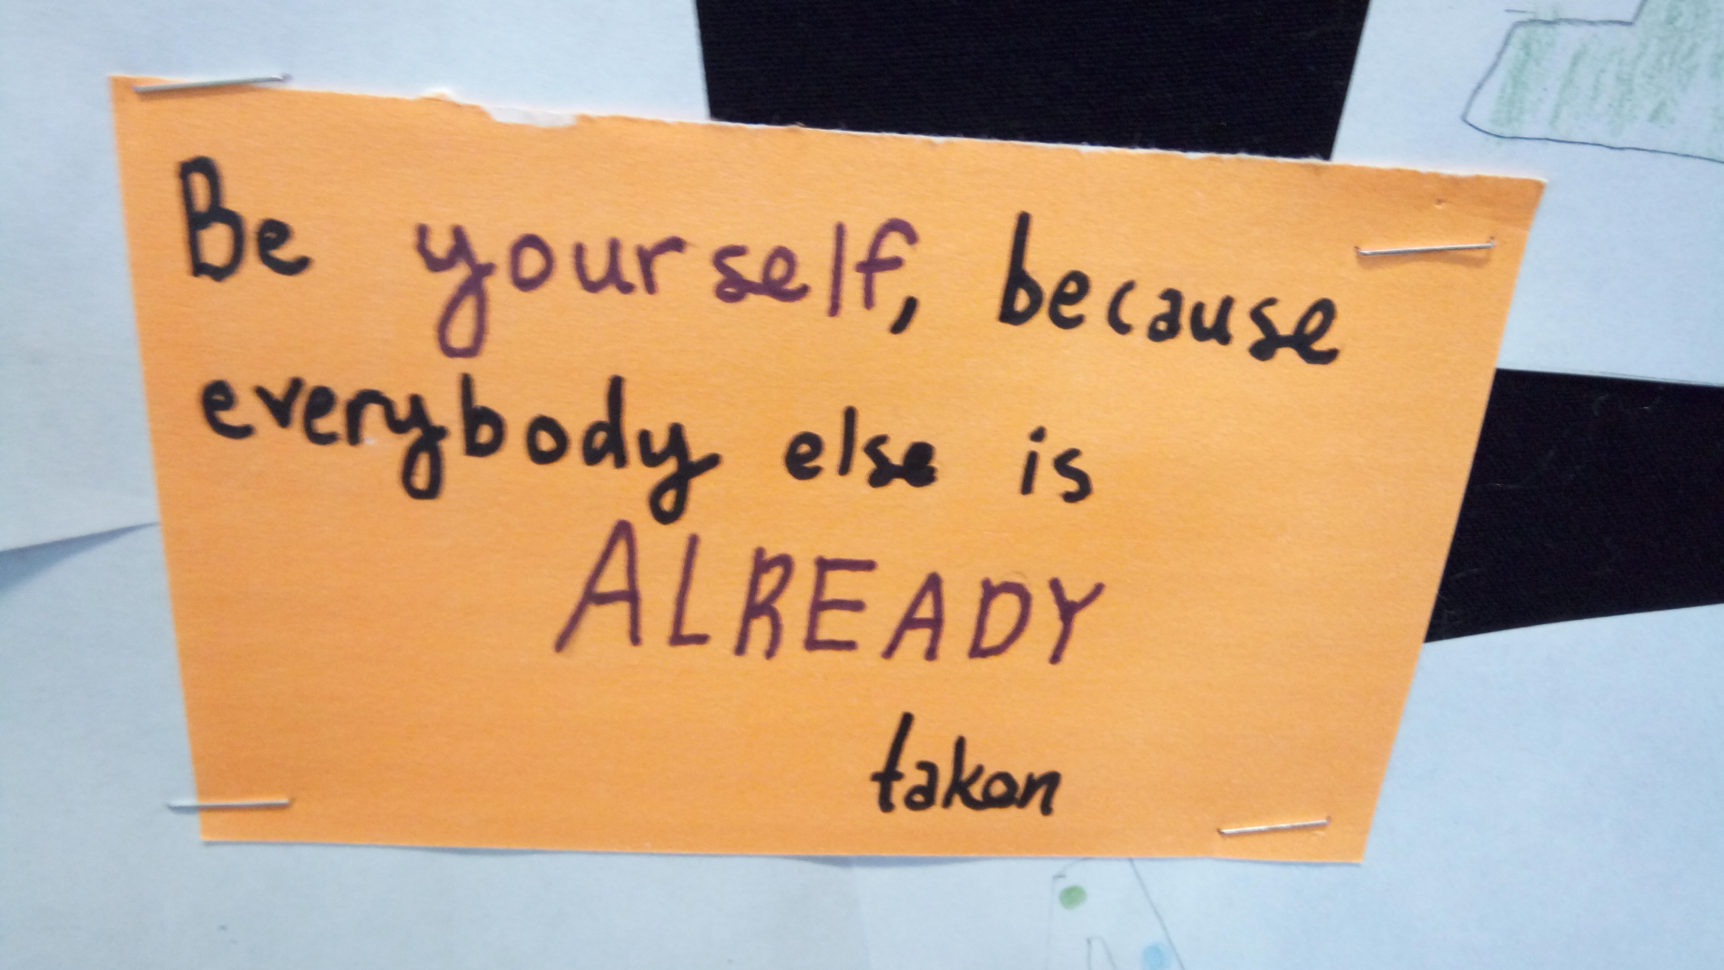 Be yourself, because
everybody else is
ALREADY
taken